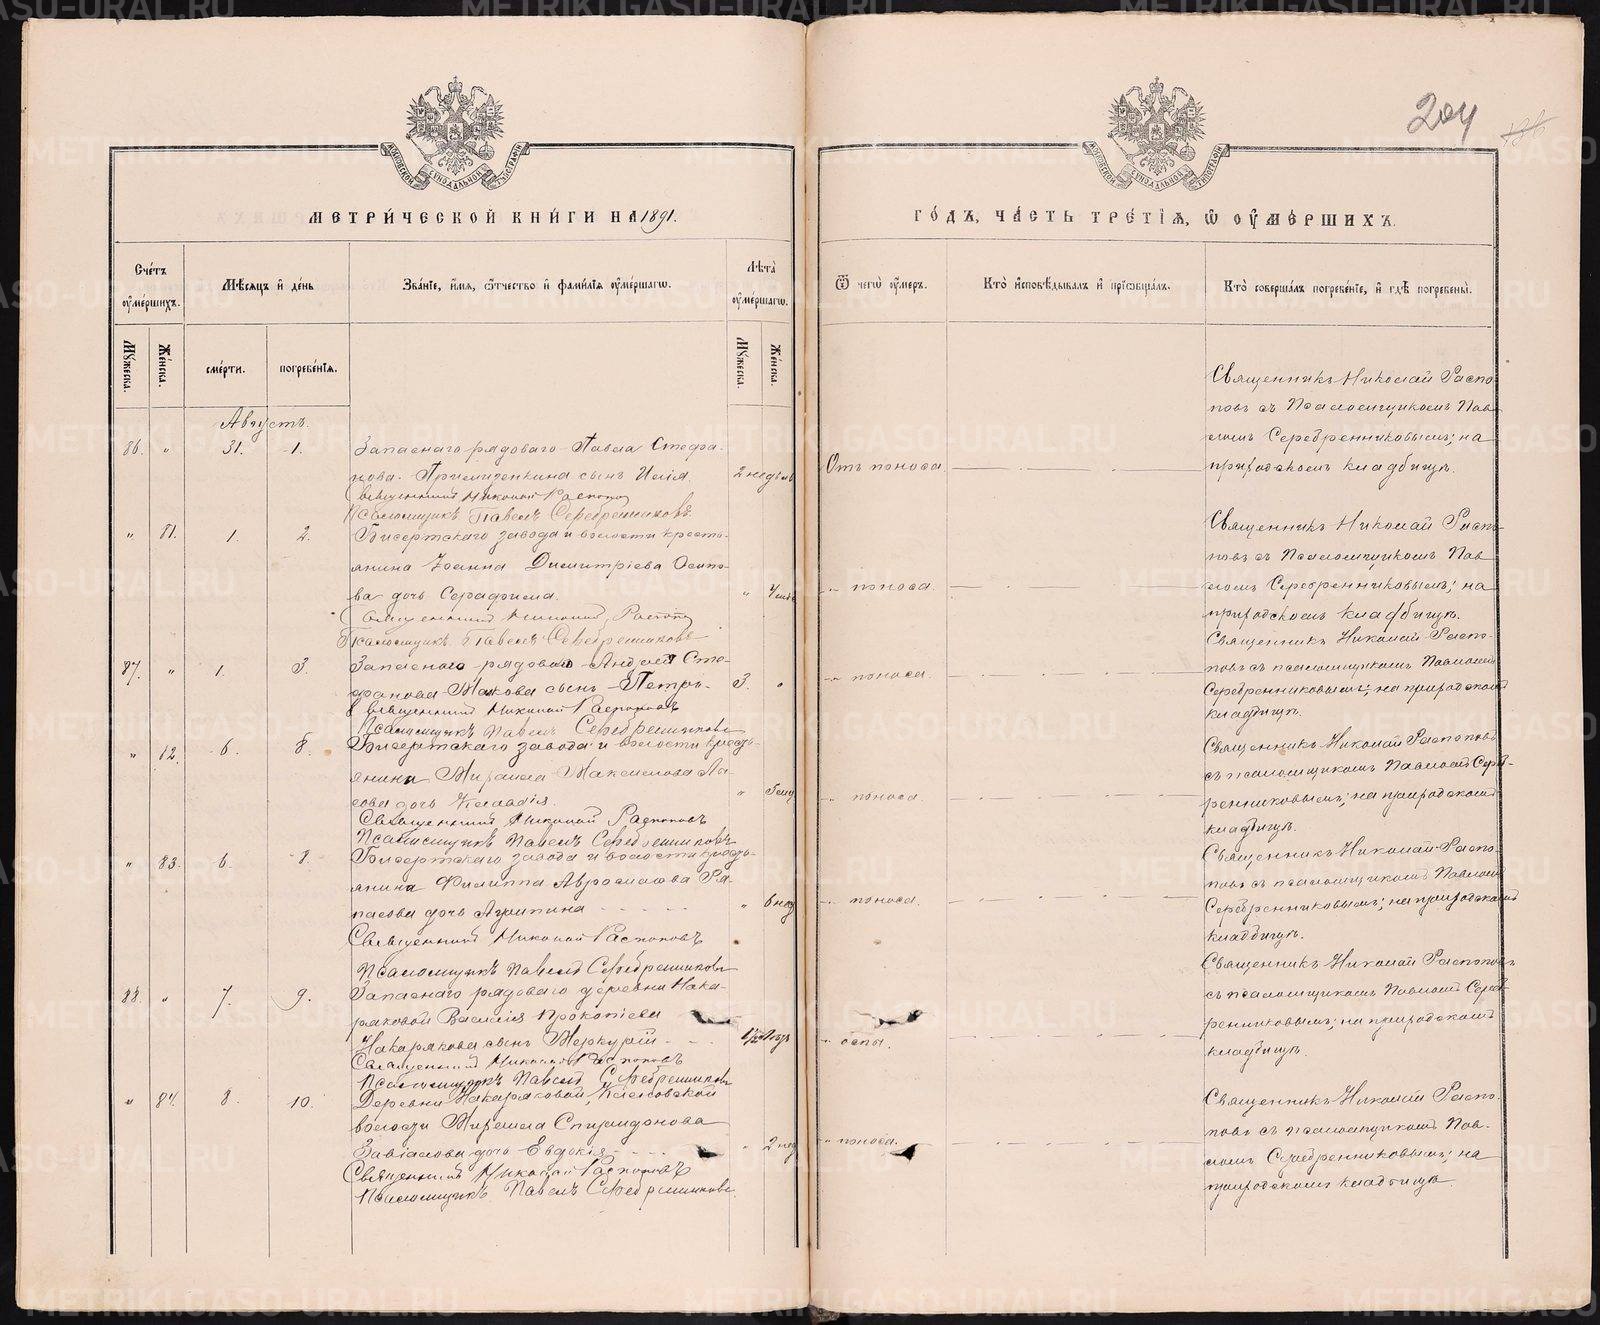 204
МЕТРИ́ЧЕСКОЙ КНИ́ГИ НА 1891.
ГО́ДЪ, ЧА́СТЬ ТРЕ́ТІѦ, Ѡ ОУ҆МЕ́РШИХЪ.
МОСКОВСКОЙ СѴНОДАЛЬНОЙ ТИПОГРАФІИ
МОСКОВСКОЙ СѴНОДАЛЬНОЙ ТИПОГРАФІИ
Сче́тъ оу҆ме́ршихъ.
Мѣ́сѧцъ и҆ де́нь
Зва́нїе, и҆́мѧ, ѻ҆́тчество и҆ фами́лїѧ оу҆ме́ршагѡ.
Лѣ́та оу҆ме́ршагѡ.
Ѿ чегѡ̀ оу҆́меръ.
Кто̀ и҆сповѣ́дывалъ и҆ прїѡбща́лъ.
Кто̀ соверша́лъ погребе́нїе, и҆ гдѣ̀ погребены̀.
Мꙋ́жеска.
Же́нска.
сме́рти.
погребе́нїѧ.
Мꙋ́жеска.
Же́нска.
Августъ.
86. " 31. 1.
Запаснаго рядоваго Павла Стефа-
нова сынъ Илія. 2 недѣль
Священникъ Николай Распопов
Псаломщикъ Павелъ Серебренниковъ.
Отъ поноса
Священникъ Николай Распо-
повъ съ Псаломщикомъ Пав-
ломъ Серебренниковымъ; на
приходскомъ кладбищѣ.
" 81. 1. 2.
Бисертскаго завода и волости кресть-
янина Іоанна Димитріева Осипо-
ва дочь Серафима.
Священникъ Николай Распопов
Псаломщикъ Павелъ Серебренниковъ
" поноса.
Священникъ Николай Распо-
повъ съ Псаломщикомъ Пав-
ломъ Серебренниковымъ; на
приходскомъ кладбищѣ.
87. " 1. 3.
Запаснаго рядового Андрея Сте-
фанова сынъ Петръ. 3. "
Священникъ Николай Распоповъ
Псаломщикъ Павелъ Серебренниковъ
" поноса.
Священникъ Николай Распо-
повъ съ псаломщикомъ Павломъ
Серебренниковымъ; на приходскомъ
кладбищѣ.
" 82. 6. 8.
Бисертскаго завода и волости кресть-
янина Михаила Максимова
дочь Клавдія. "
Священникъ Николай Распоповъ
Псаломщикъ Павелъ Серебренниковъ
" поноса.
Священникъ Николай Распоповъ
съ псаломщикомъ Павломъ Сереб-
ренниковымъ; на приходскомъ
кладбищѣ.
" 83. 6. 8.
Бисертскаго завода и волости кресть-
янина Филиппа
дочь "
Священникъ Николай Распоповъ
Псаломщикъ Павелъ Серебренниковъ
" поноса.
Священникъ Николай Распо-
повъ съ псаломщикомъ Павломъ
Серебренниковымъ; на приходскомъ
кладбищѣ.
88. " 7. 9.
Запаснаго рядоваго деревни Нака-
ряковой Василія Прокопіева
Накарякова сынъ Меркурій
Священникъ Николай Распоповъ
Псаломщикъ Павелъ Серебренниковъ
" оспы.
Священникъ Николай Распоповъ
съ псаломщикомъ Павломъ Сереб-
ренниковымъ; на приходскомъ
кладбищѣ.
" 84. 8. 10.
Деревни Накаряковой, Кленовской
волости Михаила Спиридонова
Завіалова дочь Евдокія " 2 нед
Священникъ Николай Распоповъ
Псаломщикъ Павелъ Серебренниковъ.
" поноса.
Священникъ Николай Распо-
повъ съ псаломщикомъ Пав-
ломъ Серебренниковымъ; на
приходскомъ кладбищѣ.
METRIKI.GASO-URAL.RU